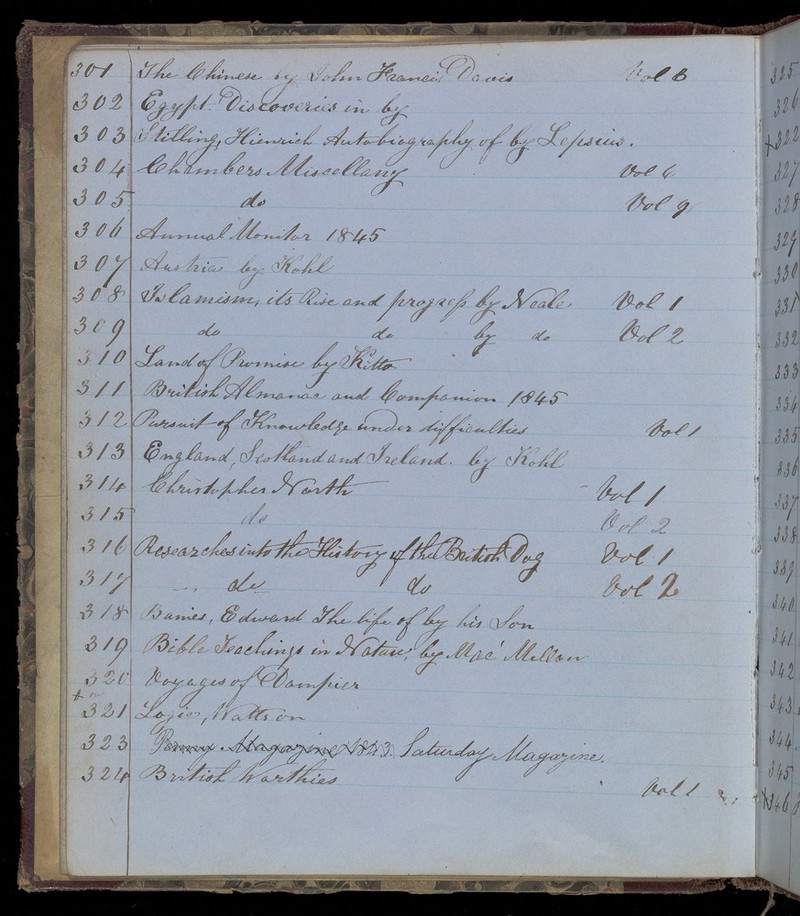 301 The Chinese by John Francis Davis Vol
302 Egypt Discoveries in by
303 Stilling, Hienrich Autobiography of by Lepsius.
304 Chambers Miscellany Vol 6
305 do Vol 9
306 Annual Monitor 1845
307 Austria by Kohl
308 Islamism, its Rise and progress by Neale Vol 1
309 do do by do Vol 2
310 Land of Promise by Kitto
311 British Almanac and Companion 1845
312 Pursuit of Knowledge under difficulties Vol 1
313 England, Scotland and Ireland. by Kohl
314 Christopher North Vol 1
315 do Vol 2
316 Researches into the History of the British Dog Vol 1
317 do do Vol 2
318 Baines, Edward The life of by his Son
319 Bible Teachings in Nature, by Mac Millan
320 Voyages of Dampier
321 Logic, Watts on
323 Penny Magazine 1843. Saturday Magazine.
324 British Worthies Vol 1
325
326
+322
327
328
329
330
331
332
333
334
335
336
337
338
339
340
341
342
343
344
345
+346